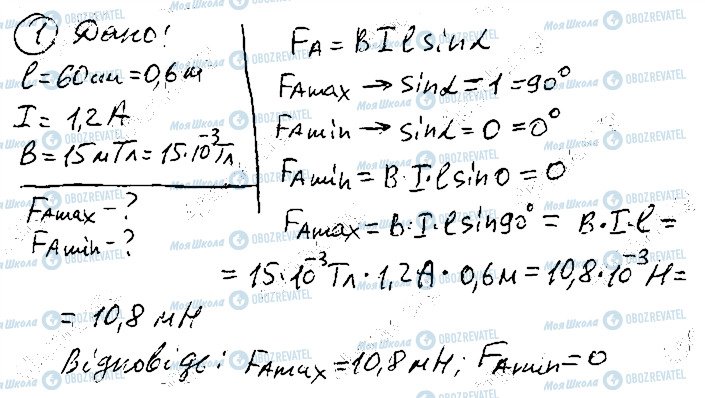 ① Дано:
l = 60 см = 0,6 м
I = 1,2 А
B = 15 мТл = 15·10⁻³ Тл
FAmax – ?
FAmin – ?
FA = B I l sinα
FAmax → sinα = 1 = 90°
FAmin → sinα = 0 = 0°
FAmin = B·I·l sin0 = 0
FAmax = B·I·l sin90° = B·I·l =
= 15·10⁻³ Тл · 1,2 А · 0,6 м = 10,8·10⁻³ Н =
= 10,8 мН
Відповідь: FAmax = 10,8 мН; FAmin = 0
Моя Школа OBOZREVATEL